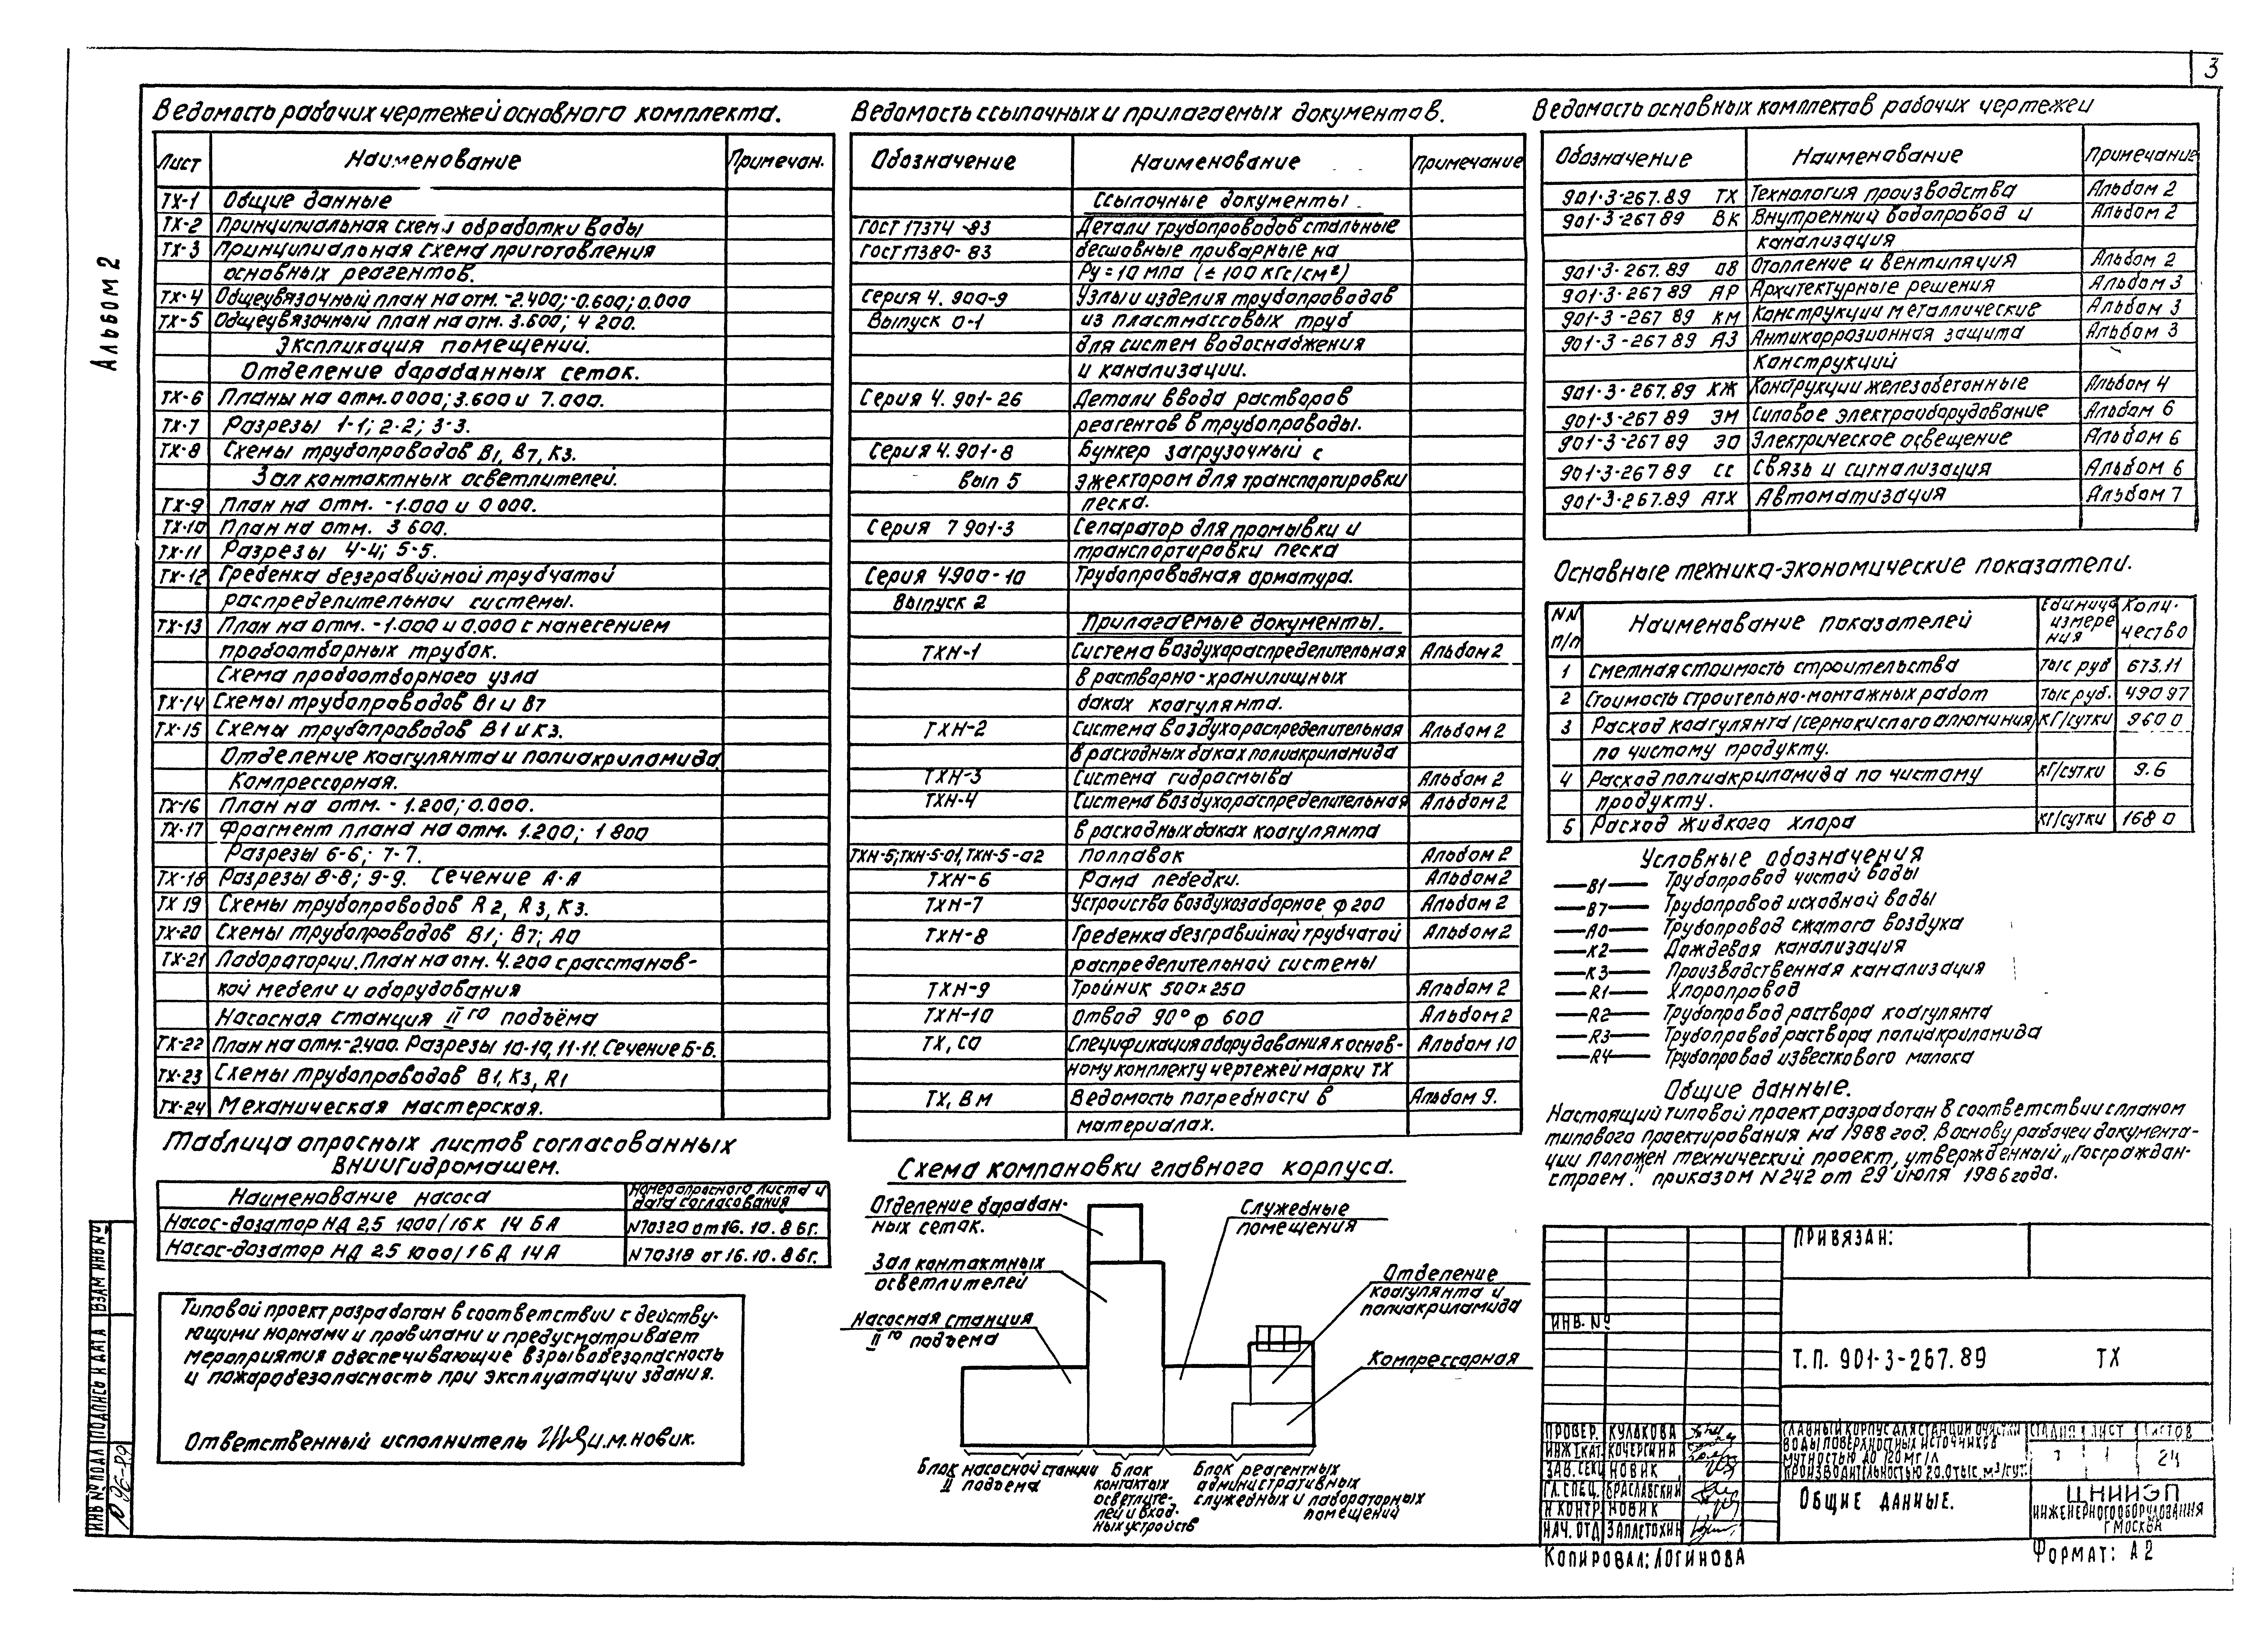 3
Альбом 2
Ведомость рабочих чертежей основного комплекта.
Лист Наименование Примечан.
ТХ-1 Общие данные
ТХ-2 Принципиальная схема обработки воды
ТХ-3 Принципиальная схема приготовления
основных реагентов.
ТХ-4 Общеувязочный план на отм. -2.400; -0.600; 0.000
ТХ-5 Общеувязочный план на отм. 3.600; 4 200.
Экспликация помещений.
Отделение барабанных сеток.
ТХ-6 Планы на отм. 0 000; 3.600 и 7.000.
ТХ-7 Разрезы 1-1; 2-2; 3-3.
ТХ-8 Схемы трубопроводов В1, В7, К3.
Зал контактных осветлителей.
ТХ-9 План на отм. -1.000 и 0 000.
ТХ-10 План на отм. 3 600.
ТХ-11 Разрезы 4-4; 5-5.
ТХ-12 Гребенка безгравийной трубчатой
распределительной системы.
ТХ-13 План на отм. -1.000 и 0.000 с нанесением
пробоотборных трубок.
Схема пробоотборного узла
ТХ-14 Схемы трубопроводов В1 и В7
ТХ-15 Схемы трубопроводов В1 и К3.
Отделение коагулянта и полиакриламида
Компрессорная.
ТХ-16 План на отм. - 1.200; 0.000.
ТХ-17 Фрагмент плана на отм. 1.200; 1 800
Разрезы 6-6; 7-7.
ТХ-18 Разрезы 8-8; 9-9. Сечение А-А
ТХ 19 Схемы трубопроводов R2, R3, К3.
ТХ-20 Схемы трубопроводов В1; В7; А0
ТХ-21 Лаборатории. План на отм. 4.200 с расстанов-
кой мебели и оборудования
Насосная станция IIго подъёма
ТХ-22 План на отм.-2.400. Разрезы 10-10, 11-11. Сечение Б-Б.
ТХ-23 Схемы трубопроводов В1, К3, R1
ТХ-24 Механическая мастерская.
Таблица опросных листов согласованных
ВНИИГидромашем.
Наименование насоса Номер опросного листа и дата согласования
Насос-дозатор НД 2,5 1000/16 К 14 БА N70320 от 16.10.86г.
Насос-дозатор НД 2.5 1000/16 Д 14А N70318 от 16.10.86г.
Типовой проект разработан в соответствии с действу-
ющими нормами и правилами и предусматривает
мероприятия обеспечивающие взрывобезопасность
и пожаробезопасность при эксплуатации здания.
Ответственный исполнитель И.М.Новик.
Ведомость ссылочных и прилагаемых документов.
Обозначение Наименование Примечание
Ссылочные документы.
ГОСТ 17374 -83 Детали трубопроводов стальные
ГОСТ 17380-83 бесшовные приварные на
Ру=10 мпа (≤ 100 кгс/см²)
Серия 4. 900-9 Узлы и изделия трубопроводов
Выпуск 0-1 из пластмассовых труб
для систем водоснабжения
и канализации.
Серия 4. 901-26 Детали ввода растворов
реагентов в трубопроводы.
Серия 4.901-8 Бункер загрузочный с
Вып 5 эжектором для транспортировки
песка.
Серия 7 901-3 Сепаратор для промывки и
транспортировки песка
Серия 4.900-10 Трубопроводная арматура.
Выпуск 2
Прилагаемые документы.
ТХН-1 Система воздухораспределительная Альбом 2
в растворно-хранилищных
баках коагулянта.
ТХН-2 Система воздухораспределительная Альбом 2
в расходных баках полиакриламида
ТХН-3 Система гидросмыва Альбом 2
ТХН-4 Система воздухораспределительная Альбом 2
в расходных баках коагулянта
ТХН-5; ТХН-5-01, ТХН-5-02 Поплавок Альбом 2
ТХН-6 Рама лебедки. Альбом 2
ТХН-7 Устройства воздухозаборное ф 200 Альбом 2
ТХН-8 Гребенка безгравийной трубчатой Альбом 2
распределительной системы
ТХН-9 Тройник 500×250 Альбом 2
ТХН-10 Отвод 90° ф 600 Альбом 2
ТХ, СО Спецификация оборудования к основ- Альбом 10
ному комплекту чертежей марки ТХ
ТХ, ВМ Ведомость потребности в Альбом 9.
материалах.
Схема компановки главного корпуса.
Отделение барабан-
ных сеток.
Зал контактных
осветлителей
Насосная станция
IIго подъема
Служебные
помещения
Отделение
коагулянта и
полиакриламида
Компрессорная
Блок насосной станции
II подъема
Блок
контактых
осветлите-
лей и вход-
ных устройств
Блок реагентных
административных
служебных и лабораторных
помещений
Ведомость основных комплектов рабочих чертежей
Обозначение Наименование Примечание
901-3-267.89 ТХ Технология производства Альбом 2
901-3-267 89 ВК Внутренний водопровод и Альбом 2
канализация
901-3-267.89 ОВ Отопление и вентиляция Альбом 2
901-3-267 89 АР Архитектурные решения Альбом 3
901-3-267 89 КМ Конструкции металлические Альбом 3
901-3-267 89 АЗ Антикоррозионная защита Альбом 3
конструкций
901-3-267.89 КЖ Конструкции железобетонные Альбом 4
901-3-267 89 ЭМ Силовое электрооборудование Альбом 6
901-3-267 89 ЭО Электрическое освещение Альбом 6
901-3-267 89 СС Связь и сигнализация Альбом 6
901-3-267.89 АТХ Автоматизация Альбом 7
Основные технико-экономические показатели.
NN п/п Наименование показателей Единица измере ния Коли- чество
1 Сметная стоимость строительства тыс руб 673.11
2 Стоимость строительно-монтажных работ тыс руб. 490 97
3 Расход коагулянта/сернокислого алюминия/ кг/сутки 960 0
по чистому продукту.
4 Расход полиакриламида по чистому кг/сутки 9.6
продукту.
5 Расход жидкого хлора кг/сутки 168 0
Условные обозначения
В1 Трубопровод чистой воды
В7 Трубопровод исходной воды
А0 Трубопровод сжатого воздуха
К2 Дождевая канализация
К3 Производственная канализация
R1 Хлоропровод
R2 Трубопровод раствора коагулянта
R3 Трубопровод раствора полиакриламида
R4 Трубопровод известкового молока
Общие данные.
Настоящий типовой проект разработан в соответствии с планом
типового проектирования на 1988 год. В основу рабочей документа-
ции положен технический проект, утвержденный „Госграждан-
строем." приказом N 242 от 29 июля 1986 года.
Привязан:
Инв. №
Т.П. 901-3-267.89 ТХ
Провер. Кулакова
Инж I кат. Кочергина
Зав. сек Новик
Гл. спец. Браславский
Н контр Новик
Нач. отд Заплетохин
Главный корпус для станции очистки
воды поверхностных источников
мутностью до 120 мг/л
производительностью 20.0 тыс. м³/сут.
Стадия Лист Листов
1 24
Общие данные.
ЦНИИЭП
инженерного оборудования
г Москва
Копировал: Логинова
Формат: А2
Инв № подл Подпись и дата Взам инв №